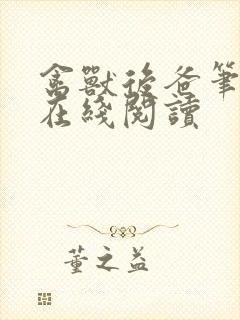 禽獸後爸筆
在綫閱讀
董之益